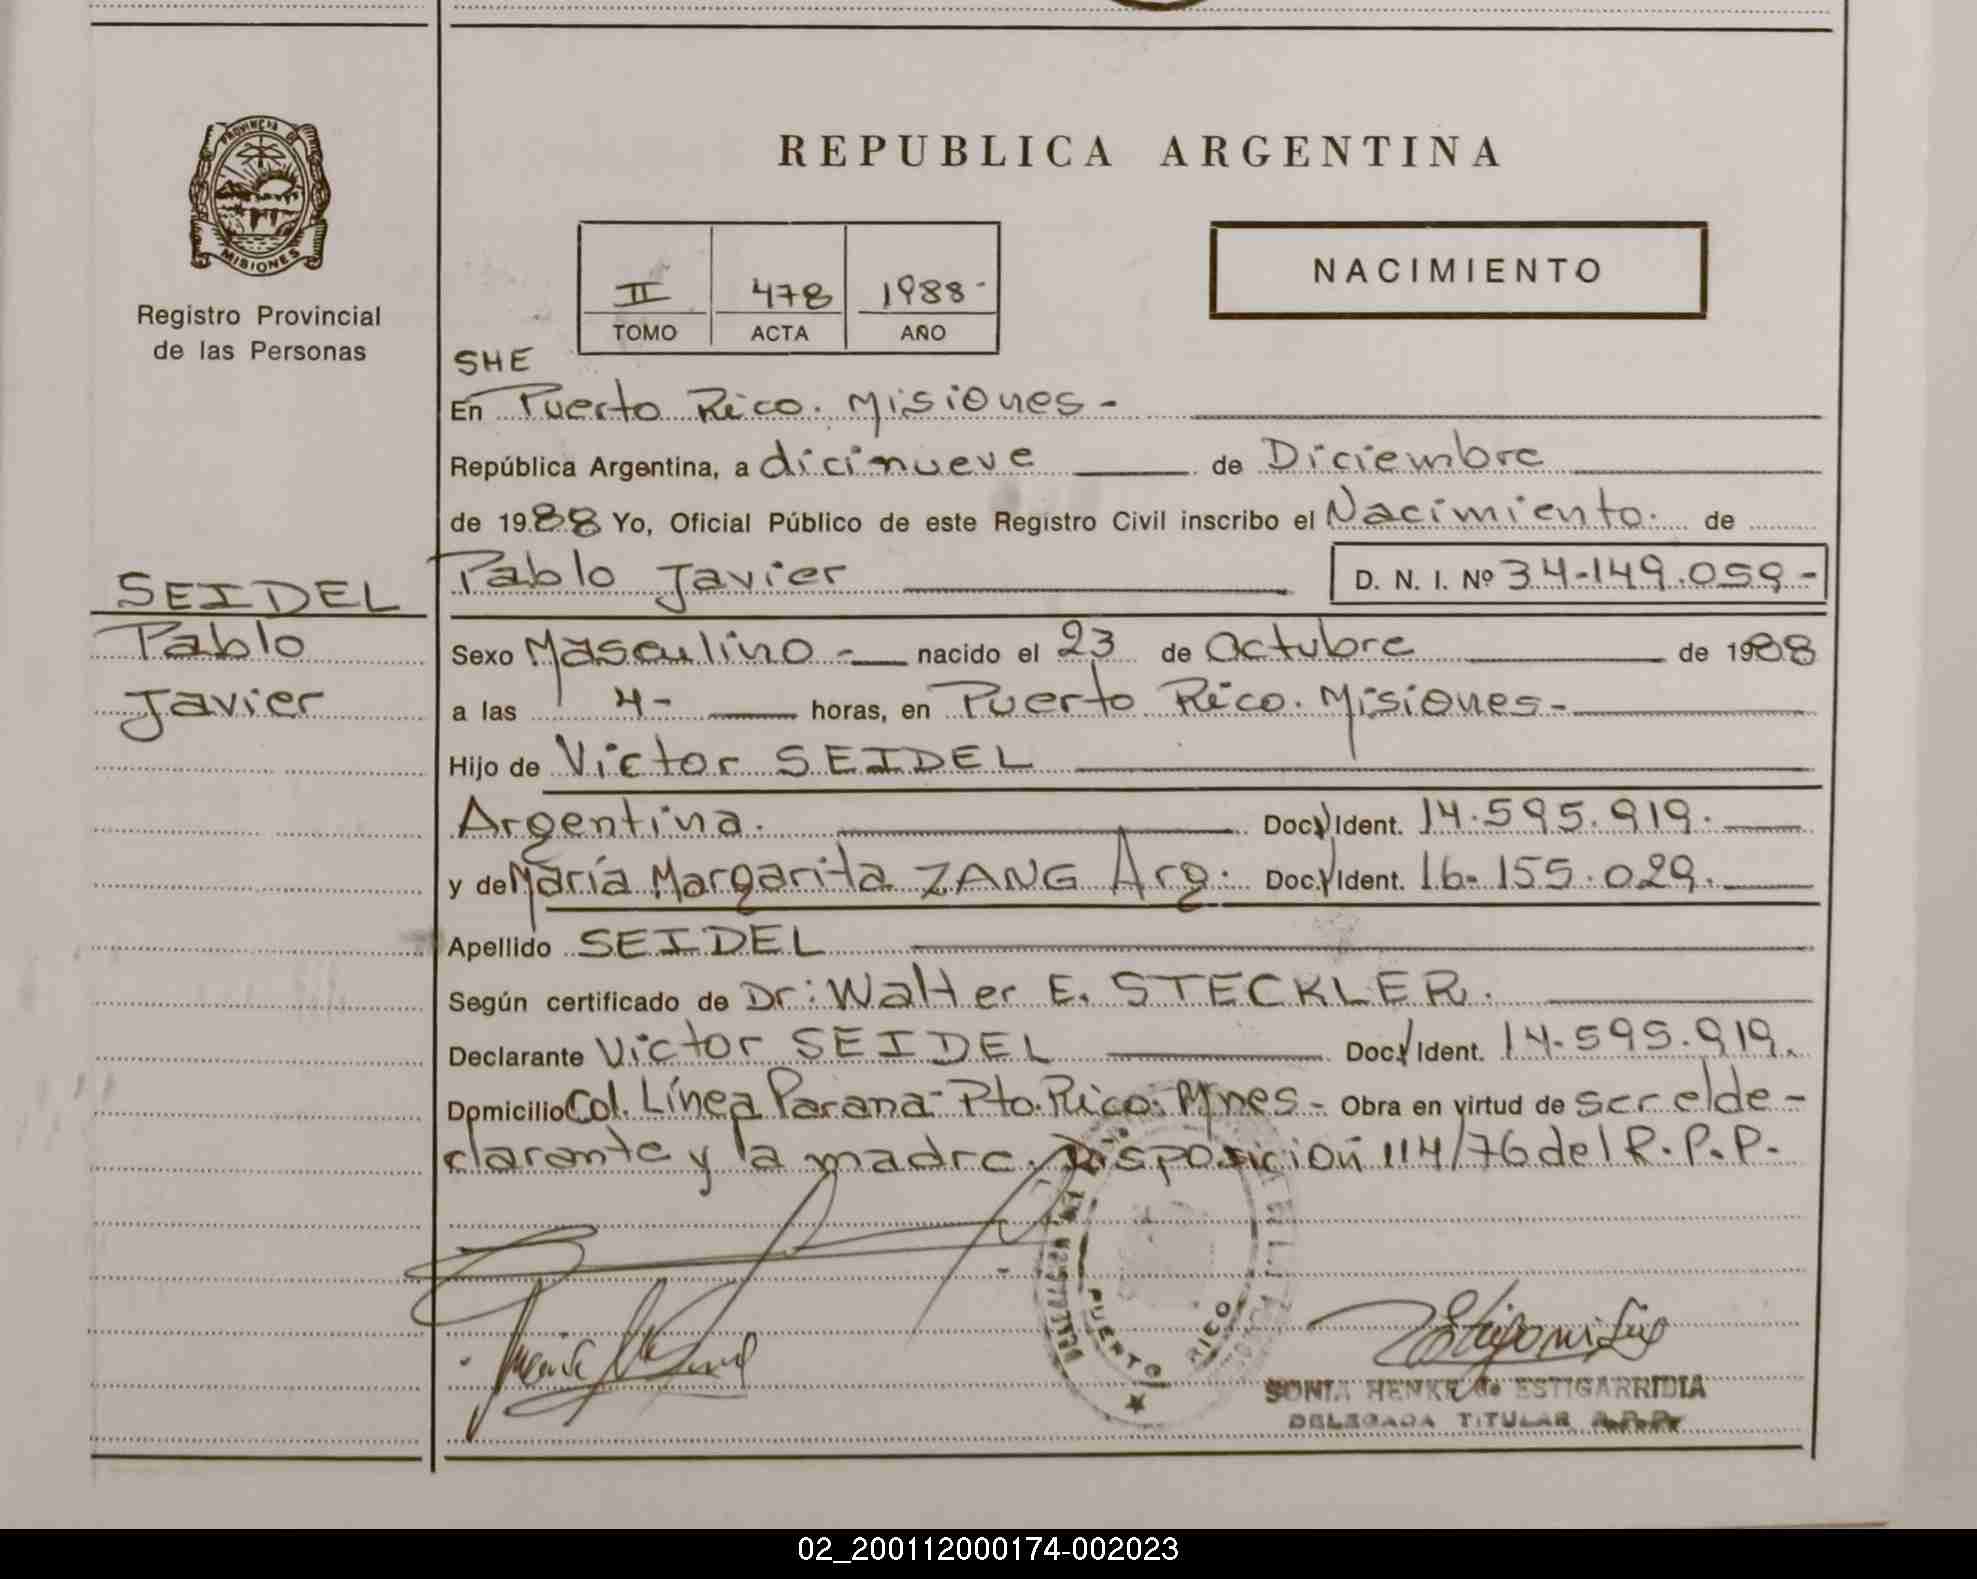 REPUBLICA ARGENTINA
PROVINCIA DE
MISIONES
Registro Provincial
de las Personas
II 478 1988-
TOMO ACTA AÑO
NACIMIENTO
SHE
En Puerto Rico. Misiones-
República Argentina, a dicinueve de Diciembre
de 1988 Yo, Oficial Público de este Registro Civil inscribo el Nacimiento. de
SEIDEL
Pablo
Javier
Pablo Javier D. N. I. Nº 34-149.059-
Sexo Masculino- nacido el 23 de Octubre de 1988
a las 4- horas, en Puerto Rico. Misiones-
Hijo de Victor SEIDEL
Argentina. Doc. Ident. 14.595.919.
y de María Margarita ZANG Arg. Doc. Ident. 16-155.029.
Apellido SEIDEL
Según certificado de Dr: Walter E. STECKLER.
Declarante Victor SEIDEL Doc. Ident. 14-595.919.
Domicilio Col. Línea Parana-Pto. Rico. Mnes- Obra en virtud de ser el de-
clarante y la madre. Disposición 114/76 del R.P.P.
PUERTO RICO
SONIA HENKE de ESTIGARRIBIA
DELEGADA TITULAR R.P.P.
02_200112000174-002023